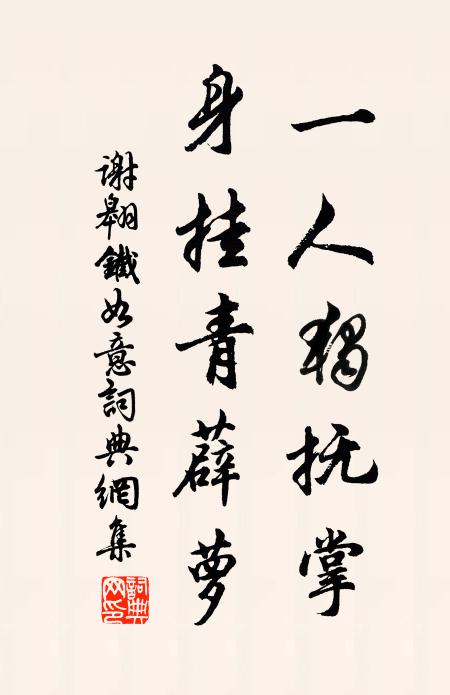 一人独抚掌
身挂青薜萝
謝翱鐵如意詞典網集
詞典網印